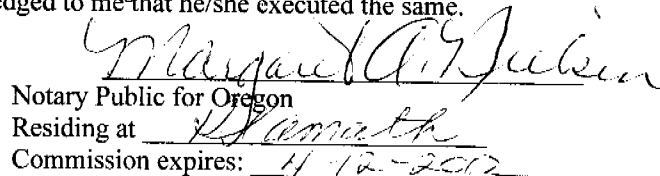 edged to me that he/she executed the same.
Margaret A. Nielsen
Notary Public for Oregon
Residing at Klamath
Commission expires: 4-12-2012